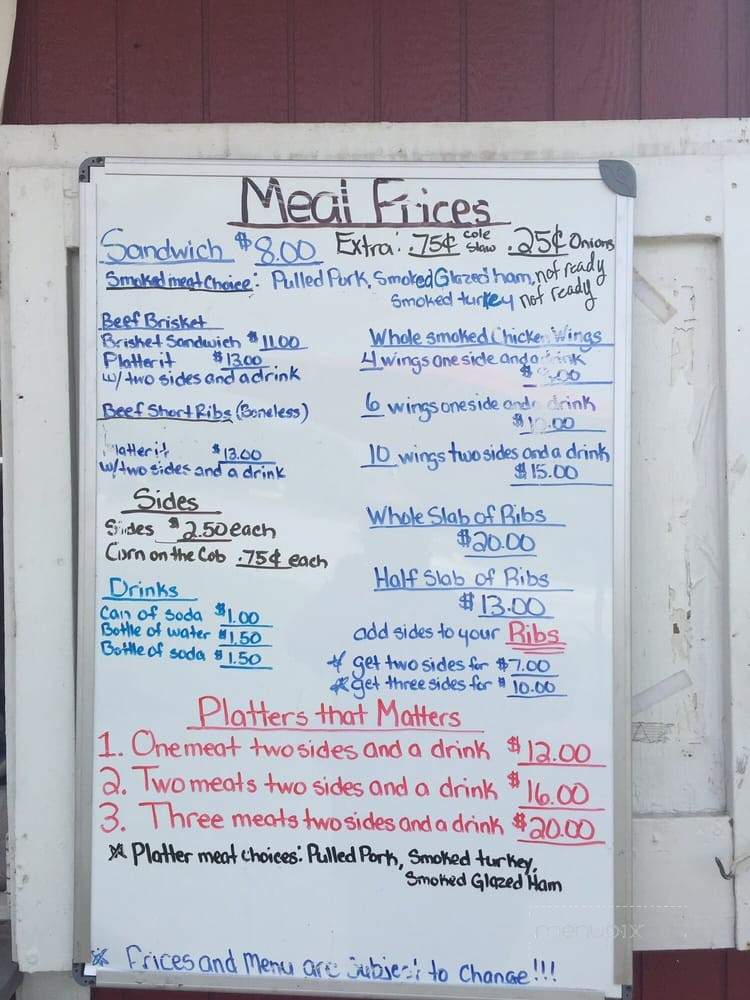 Meal Prices
Sandwich $8.00 Extra: .75¢ cole slaw .25¢ Onions
Smoked meat Choice: Pulled Pork, Smoked Glazed ham, not ready
Smoked turkey not ready
Beef Brisket
Brisket Sandwich $11.00
Platter it $13.00
w/ two sides and a drink
Beef Short Ribs (Boneless)
Platter it $13.00
w/ two sides and a drink
Sides
Sides $2.50 each
Corn on the Cob .75¢ each
Drinks
Can of soda $1.00
Bottle of water $1.50
Bottle of soda $1.50
Whole smoked Chicken Wings
4 wings one side and a drink
$ .00
6 wings one side and a drink
$1 .00
10 wings two sides and a drink
$15.00
Whole Slab of Ribs
$20.00
Half Slab of Ribs
$13.00
add sides to your Ribs
* get two sides for $7.00
* get three sides for $10.00
Platters that Matters
1. One meat two sides and a drink $12.00
2. Two meats two sides and a drink $16.00
3. Three meats two sides and a drink $20.00
* Platter meat choices: Pulled Pork, Smoked turkey,
Smoked Glazed Ham
menupix
* Prices and Menu are Subject to Change!!!